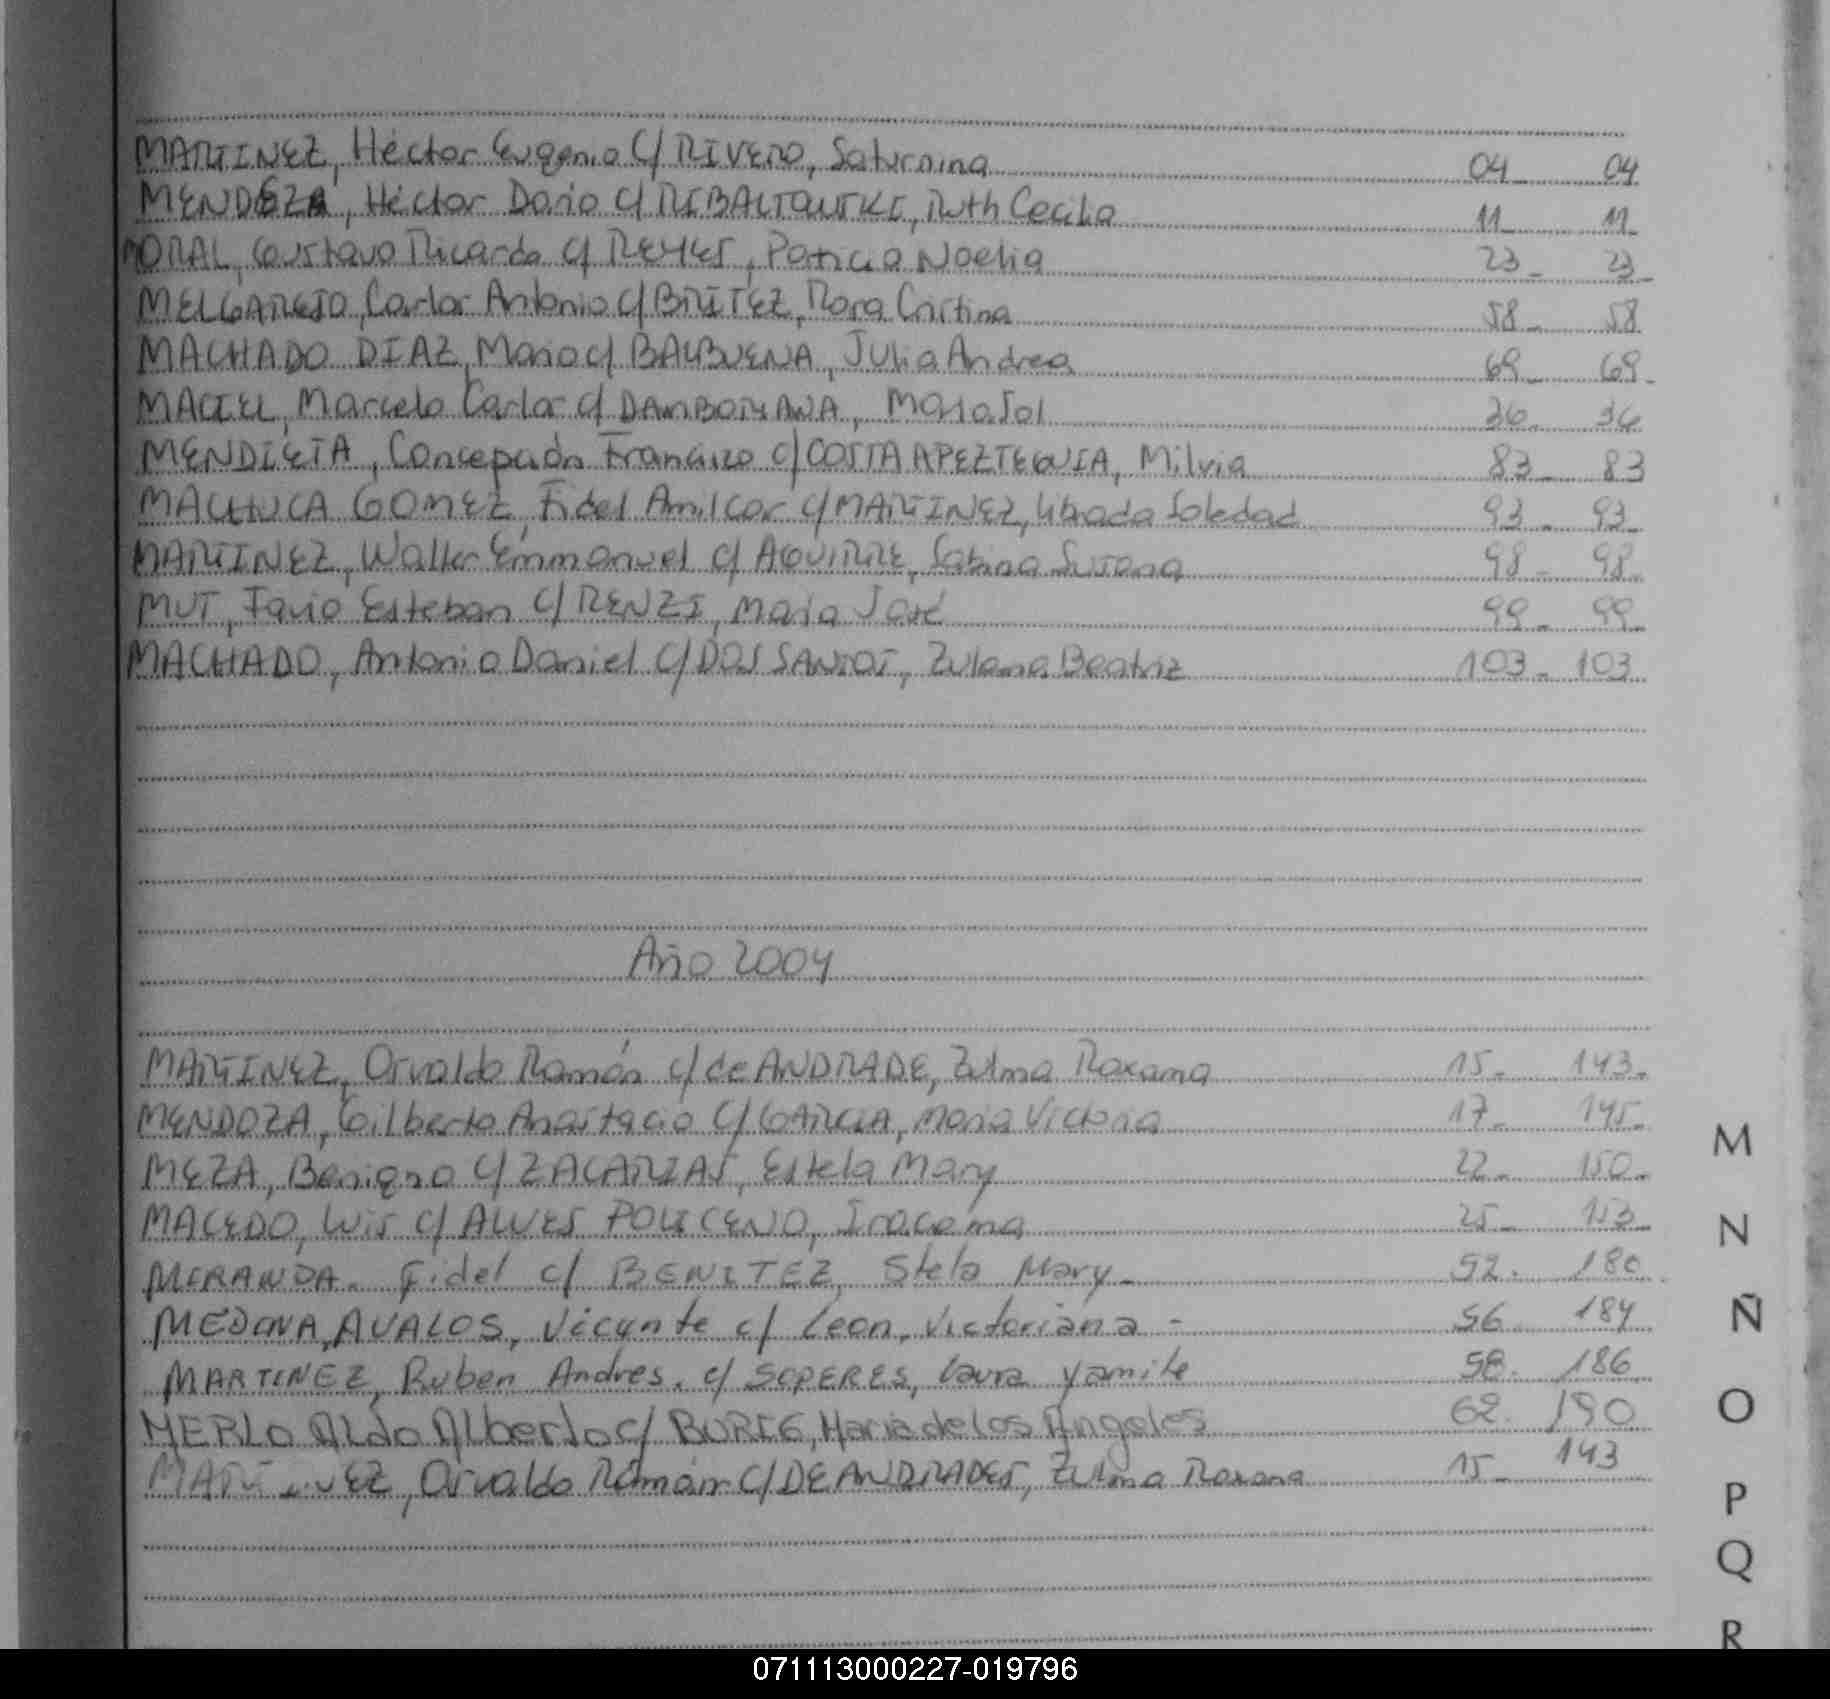 MARTINEZ, Héctor Eugenio C/ RIVERO, Saturnina 04 04
MENDEZA, Héctor Dario C/ REBALTOWSKI, Ruth Cecilia 11 11
MORAL, Gustavo Ricardo C/ REYES, Patricia Noelia 23 23
MELGAREJO, Carlos Antonio C/ BRITEZ, Rosa Cristina 58 58
MACHADO DIAZ, Mario C/ BALBUENA, Julia Andrea 69 69
MACIEL, Marcelo Carlos C/ DAMBORIANA, Maria Sol 36 36
MENDIETA, Concepción Francisco C/ COSTA APEZTEGUIA, Milvia 83 83
MACHUCA GOMEZ, Fidel Amilcar C/ MARTINEZ, Librada Soledad 93 93
MARTINEZ, Walter Emmanuel C/ AGUIRRE, Sabina Susana 98 98
MUT, Favio Esteban C/ RENZI, Maria José 99 99
MACHADO, Antonio Daniel C/ DOS SANTOS, Zulema Beatriz 103 103
Año 2004
MARTINEZ, Osvaldo Ramón C/ de ANDRADE, Zulma Roxana 15 143
MENDOZA, Gilberto Anastacio C/ GARCIA, Maria Victoria 17 145
MEZA, Benigno C/ ZACARIAS, Estela Mary 22 150
MACEDO, Luis C/ ALVES POLICENO, Iracema 25 153
MIRANDA. Fidel c/ BENITEZ, Stela Mary 52. 180
MEDINA, AVALOS, Vicente c/ Leon, Victoriana - 56 184
MARTINEZ, Ruben Andres. c/ SOPERES, Laura Yamile 58. 186
MERLO Aldo Alberto c/ BORIG, Maria de los Angeles 62. 190
MARTINEZ, Osvaldo Ramón C/ DE ANDRADES, Zulma Roxana 15 143
M
N
Ñ
O
P
Q
R
071113000227-019796